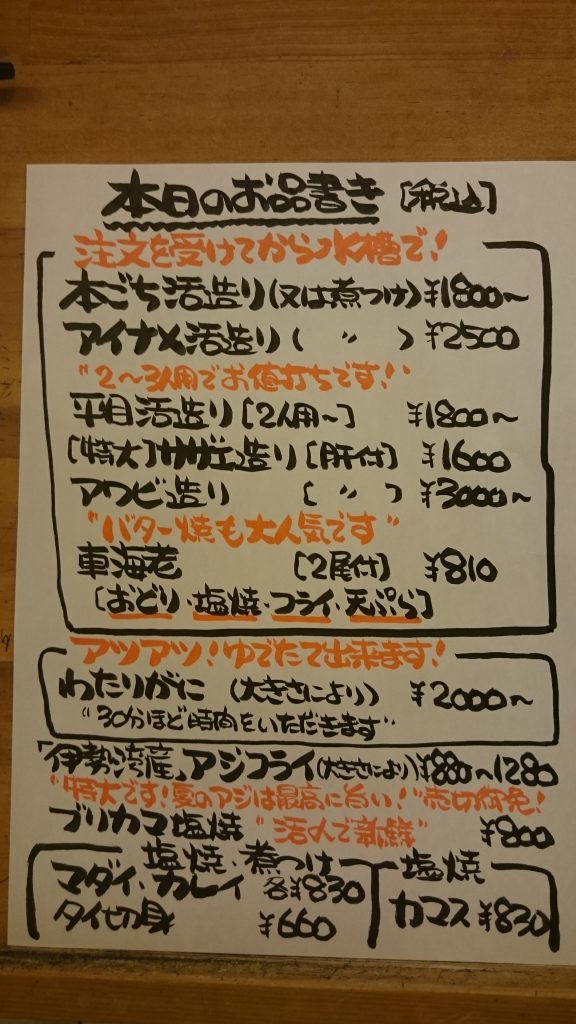 本日のお品書き [税込]
注文を受けてから水槽で!
本ごち活造り(又は煮つけ) ¥1800〜
アイナメ活造り( 〃 ) ¥2500
"2〜3人用でお値打ちです!"
平目活造り[2人用〜] ¥1800〜
[特大]サザエ造り[肝付] ¥1600
アワビ造り [ 〃 ] ¥3000〜
"バター焼も大人気です"
車海老 [2尾付] ¥810
[おどり・塩焼・フライ・天ぷら]
アツアツ!ゆでたて出来ます!
わたりがに (大きさにより) ¥2000〜
"30分ほど時間をいただきます"
「伊勢湾産」アジフライ(大きさにより)¥880〜1280
"特大です!夏のアジは最高に旨い!"売切御免!
ブリカマ塩焼 "活〆で新鮮" ¥800
塩焼・煮つけ
マダイ・カレイ 各¥830
タイ切り身 ¥660
塩焼
カマス ¥830